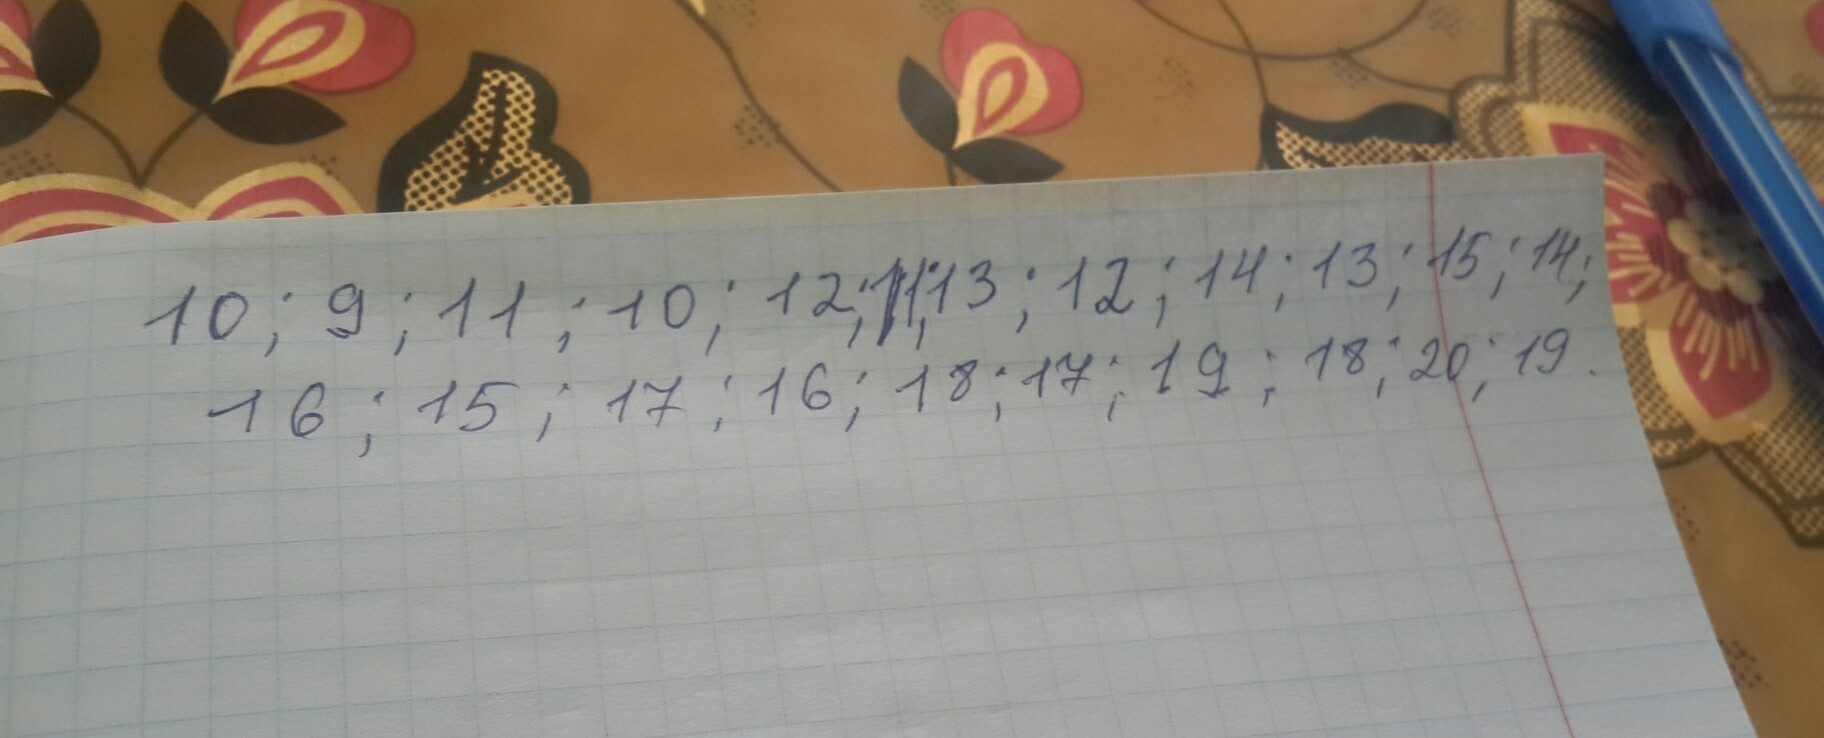 10; 9; 11; 10; 12; 11; 13; 12; 14; 13; 15; 14;
16; 15; 17; 16; 18; 17; 19; 18; 20; 19.